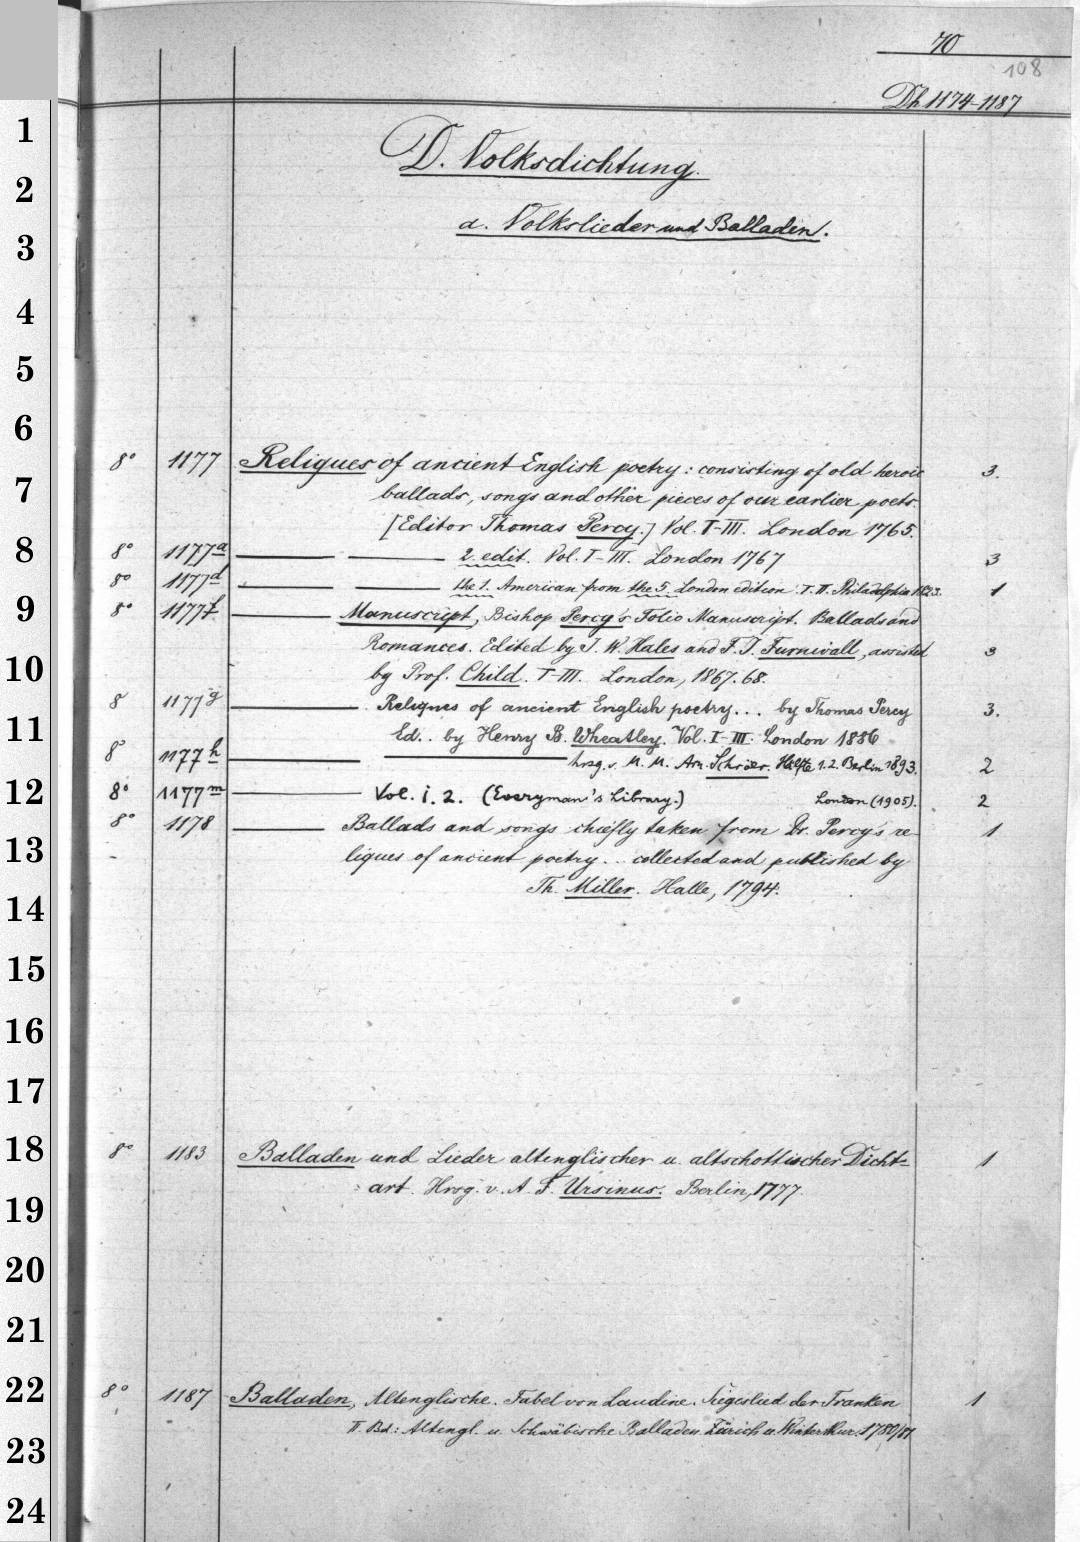 70
108
Dh 1174-1187
D. Volksdichtung.
a. Volkslieder und Balladen.
8° 1177 Reliques of ancient English poetry: consisting of old heroic 3.
ballads, songs and other pieces of our earlier poets.
[Editor Thomas Percy.] Vol. I-III. London 1765.
8° 1177a 2. edit. Vol. I-III. London 1767 3
8° 1177d the 1. American from the 5. London edition. T. II. Philadelphia 1823. 1
8° 1177f Manuscript, Bishop Percy's Folio Manuscript. Ballads and
Romances. Edited by J. W. Hales and F. J. Furnivall, assisted 3
by Prof. Child. I-III. London, 1867.68.
8 1177g Reliques of ancient English poetry... by Thomas Percy 3.
Ed.. by Henry B. Wheatley. Vol. I-III. London 1886
8 1177h hrsg. v. M. M. Arn. Schröer. Hälfte 1.2. Berlin 1893. 2
8° 1177m Vol. 1. 2. (Everyman's Library.) London (1905). 2
8° 1178 Ballads and songs chiefly taken from Dr. Percy's re- 1
liques of ancient poetry... collected and published by
Th. Miller. Halle, 1794.
8° 1183 Balladen und Lieder altenglischer u. altschottischer Dicht- 1
art. Hrsg. v. A. F. Ursinus. Berlin, 1777.
8° 1187 Balladen, Altenglische. Fabel von Laudine. Siegeslied der Franken 1
II. Bd.: Altengl. u. Schwäbische Balladen. Zürich u. Winterthur. 1780/81
1
2
3
4
5
6
7
8
9
10
11
12
13
14
15
16
17
18
19
20
21
22
23
24